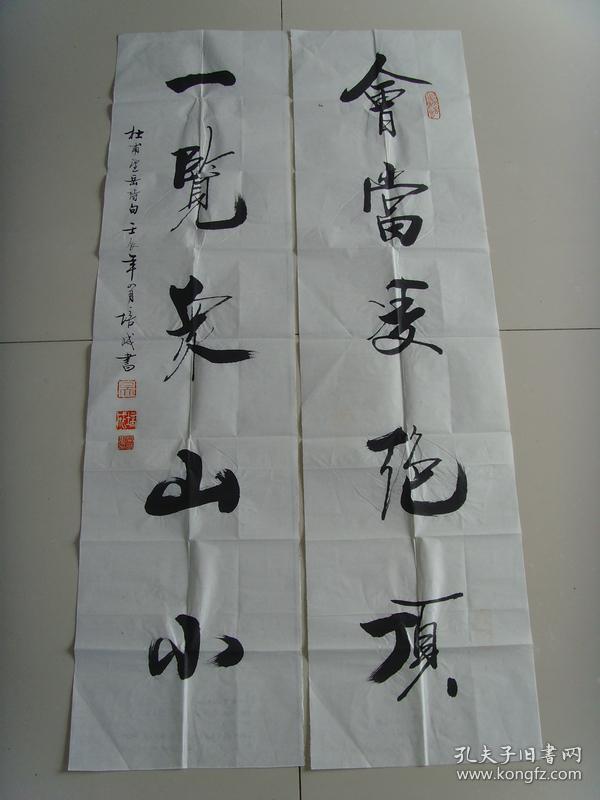 會當凌絕頂
一覽衆山小
杜甫望岳詩句 壬辰年 月 培成書
孔夫子旧書网
www.kongfz.com